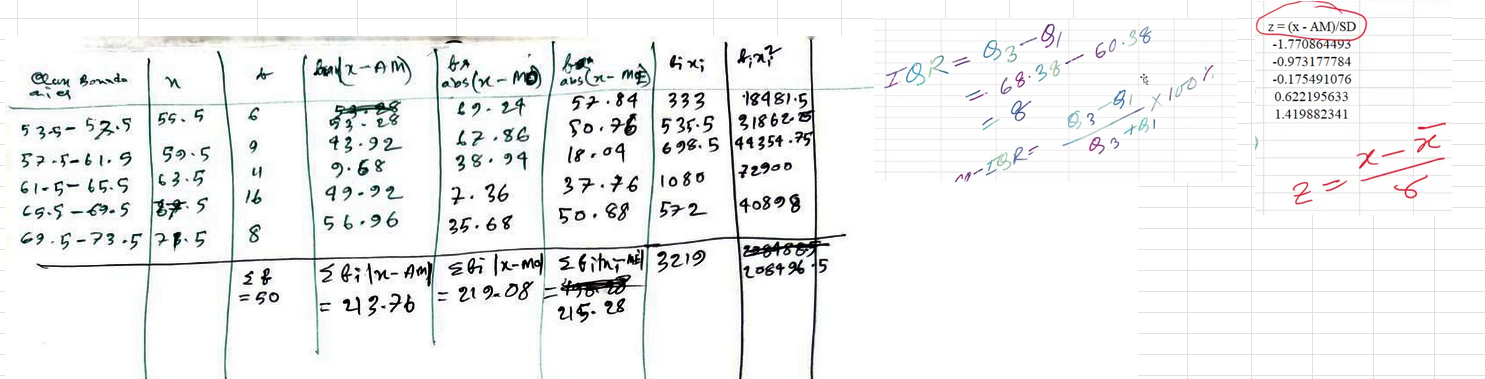 Class Bounda x f fxn(x-AM) fx abs(x-MO) fxn abs(x-ME) fixi fixi²
aries
53.5-57.5 55.5 6 53.28 53.28 69.24 57.84 333 18481.5
57.5-61.5 59.5 9 43.92 67.86 50.76 535.5 31862.25
61.5-65.5 63.5 11 9.68 38.94 18.04 698.5 44354.75
65.5-69.5 67.5 16 49.92 7.36 37.76 1080 72900
69.5-73.5 71.5 8 56.96 35.68 50.88 572 40898
Σf Σfi|x-AM| Σfi|x-Mo| Σfi|xi-ME| 3219
=50 = 213.76 = 219.08 = 215.28 208496.5
IQR = Q3-Q1
= 68.38-60.38
= 8
IQR= Q3-Q1 / Q3+Q1 ×100%
z = (x - AM)/SD
-1.770864493
-0.973177784
-0.175491076
0.622195633
1.419882341
z = x - x̄ / σ